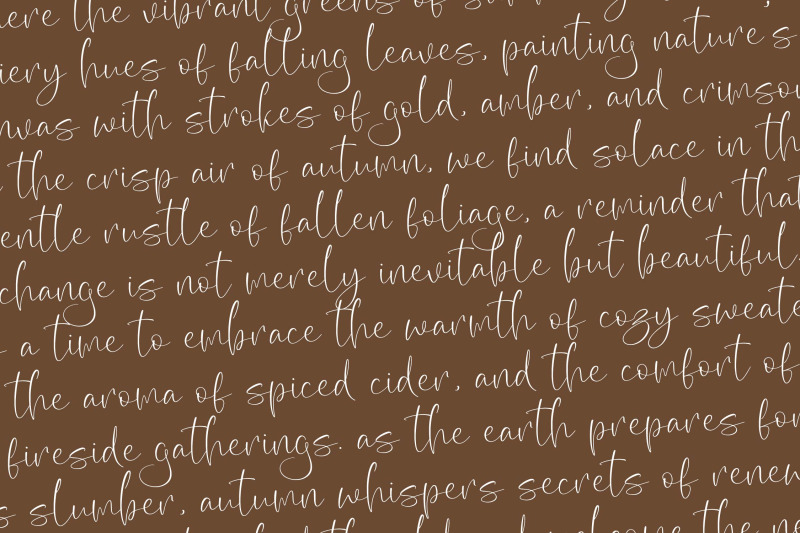 ere the vibrant greens of
iery hues of falling leaves, painting nature's
nvas with strokes of gold, amber, and crimson
the crisp air of autumn, we find solace in th
entle rustle of fallen foliage, a reminder that
change is not merely inevitable but beautiful.
a time to embrace the warmth of cozy sweate
the aroma of spiced cider, and the comfort of
fireside gatherings. as the earth prepares for
s slumber, autumn whispers secrets of renew